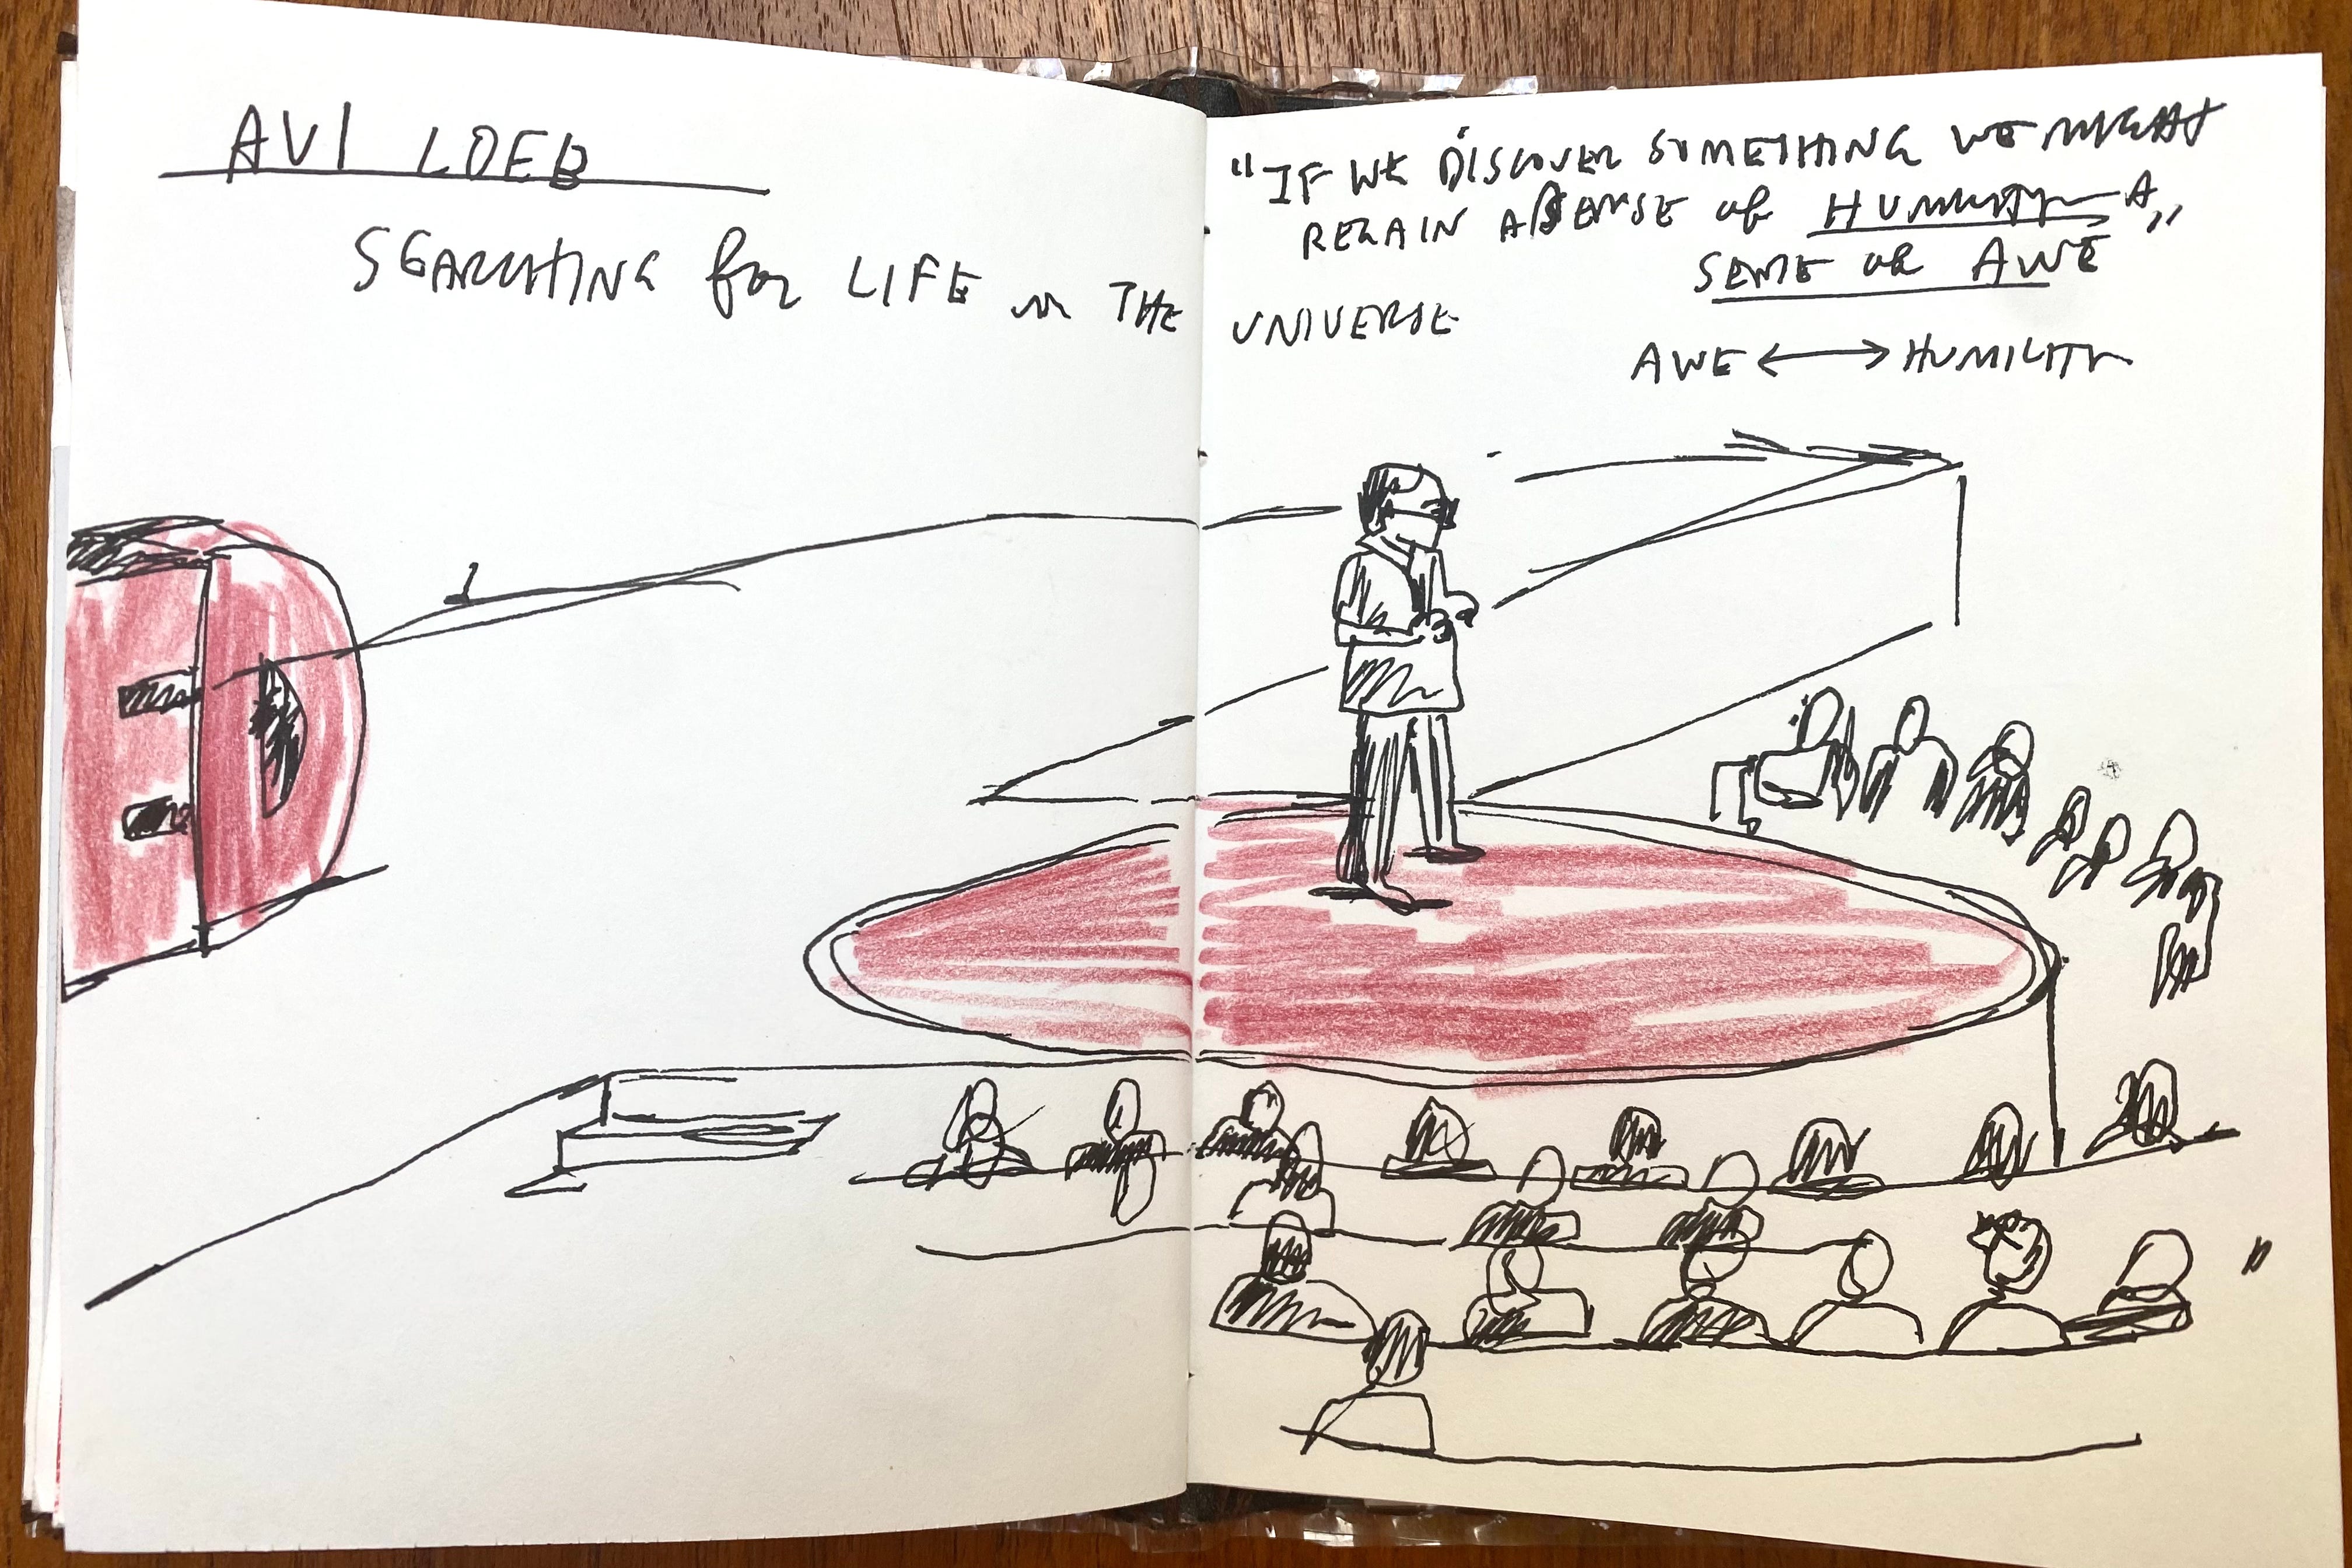 AVI LOEB
SEARCHING for LIFE in THE UNIVERSE
"IF WE DISCOVER SOMETHING WE MIGHT
REGAIN A SENSE of HUMILITY A„
SENSE of AWE
AWE ⟷ HUMILITY
ED